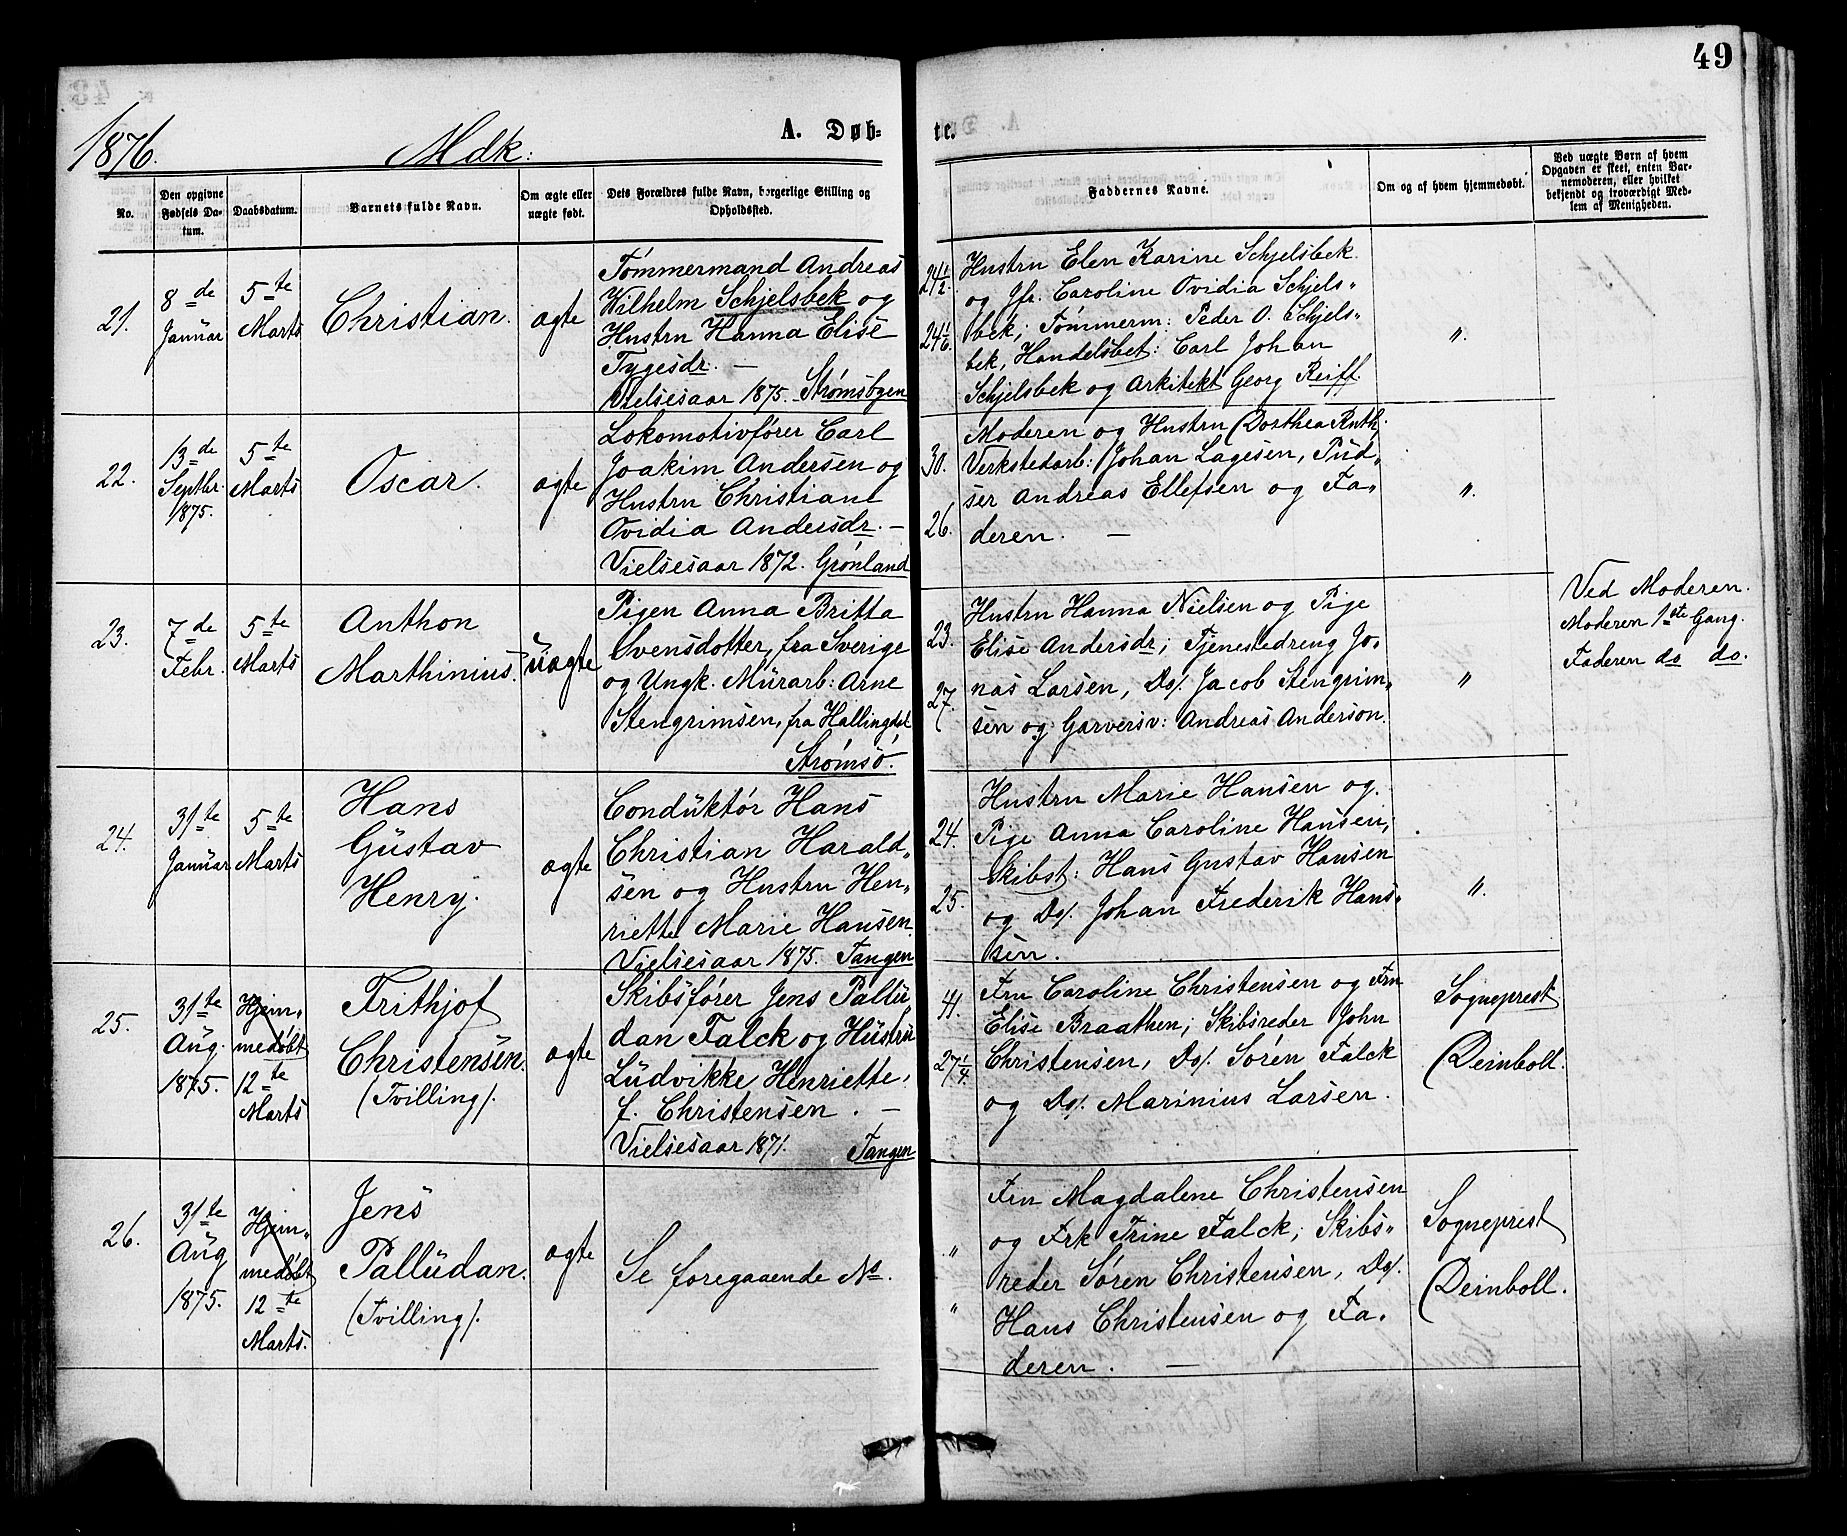 49
1876.
Mdk:
A. Døb-
te.
No.
Den opgivne Fødsels Da-tum.
Daabsdatum.
Barnets fulde Navn.
Om ægte eller uægte født.
Dets Forældres fulde Navn, borgerlige Stilling og Opholdsted.
Faddernes Navne.
Om og af hvem hjemmedøbt.
Ved uægte Børn af hvem Opgaven er skeet, enten Bar-nemoderen, eller hvilket bekjendt og troværdigt Med-lem af Menigheden.
21.
8de
Januar
5te
Marts
Christian.
ægte
Tømmermand Andreas
Wilhelm Schjelsbek og
Hustru Hanna Elise
Tygesdr. —
Vielsesaar 1875. Strømsbyen
24 1/2.
24 1/6.
Hustru Elen Karine Schjelsbek
og Jfr. Caroline Ovidia Schjels„
bek; Tømmerm: Peder O. Schjels„
bek, Handelsbet: Carl Johan
Schjelsbek og Arkitekt Georg Reiff.
„.
22.
13de
Septbr.
1875.
5te
Marts
Oscar.
ægte
Lokomotivfører Carl
Joakim Andersen og
Hustru Christiane
Ovidia Andersdr. —
Vielsesaar 1872. Grønland
30.
26.
Moderen og Hustru Dorthea Ruth;
Verkstedarb: Johan Lagesen, Pud„
ser Andreas Ellefsen og Fa„
deren. —
„.
23.
7de
Febr.
5te
Marts
Anthon
Marthinius.
uægte
Pigen Anna Britta
Svensdotter, fra Sverige
og Ungk. Murarb: Arne
Stengrimsen, fra Hallingdal
Strømsø.
23.
27.
Hustru Hanna Nielsen og Pige
Elise Andersdr; Tjenestedreng Jo„
nas Larsen, Do/. Jacob Stengrim„
sen og Garversv: Andreas Anderson.
„
Ved Moderen.
Moderen 1ste Gang.
Faderen do do.
24.
31te
Januar
5te
Marts
Hans
Gustav
Henry.
ægte
Conduktør Hans
Christian Harald„
sen og Hustru Hen„
riette Marie Hansen.
Vielsesaar 1875. Tangen
24.
25.
Hustru Marie Hansen og
Pige Anna Caroline Hansen;
Skibst: Hans Gustav Hansen
og Do/. Johan Frederik Hans„
sen.
„.
25.
31te
Aug.
1875.
Hjem„
medøbt
12te
Marts
Frithjof
Christensen.
(Tvilling).
ægte
Skibsfører Jens Pallu
dan Falck og Hustru
Ludvikke Henriette,
f. Christensen. —
Vielsesaar 1871. Tangen
41.
27 1/4.
Fru Caroline Christensen og Fru
Elise Braathen; Skibsreder John
Christensen, Do/. Søren Falck
og Do/. Marinius Larsen.
Sogneprest
Deinboll.
26.
31te
Aug
1875.
Hjem„
medøbt
12te
Marts.
Jens
Palludan.
(Tvilling).
ægte
Se foregaaende No.
„
„
Fru Magdalene Christensen
og Frk Trine Falck; Skibs„
reder Søren Christensen, Do/.
Hans Christensen og Fa„
deren. —
Sogneprest
Deinboll.